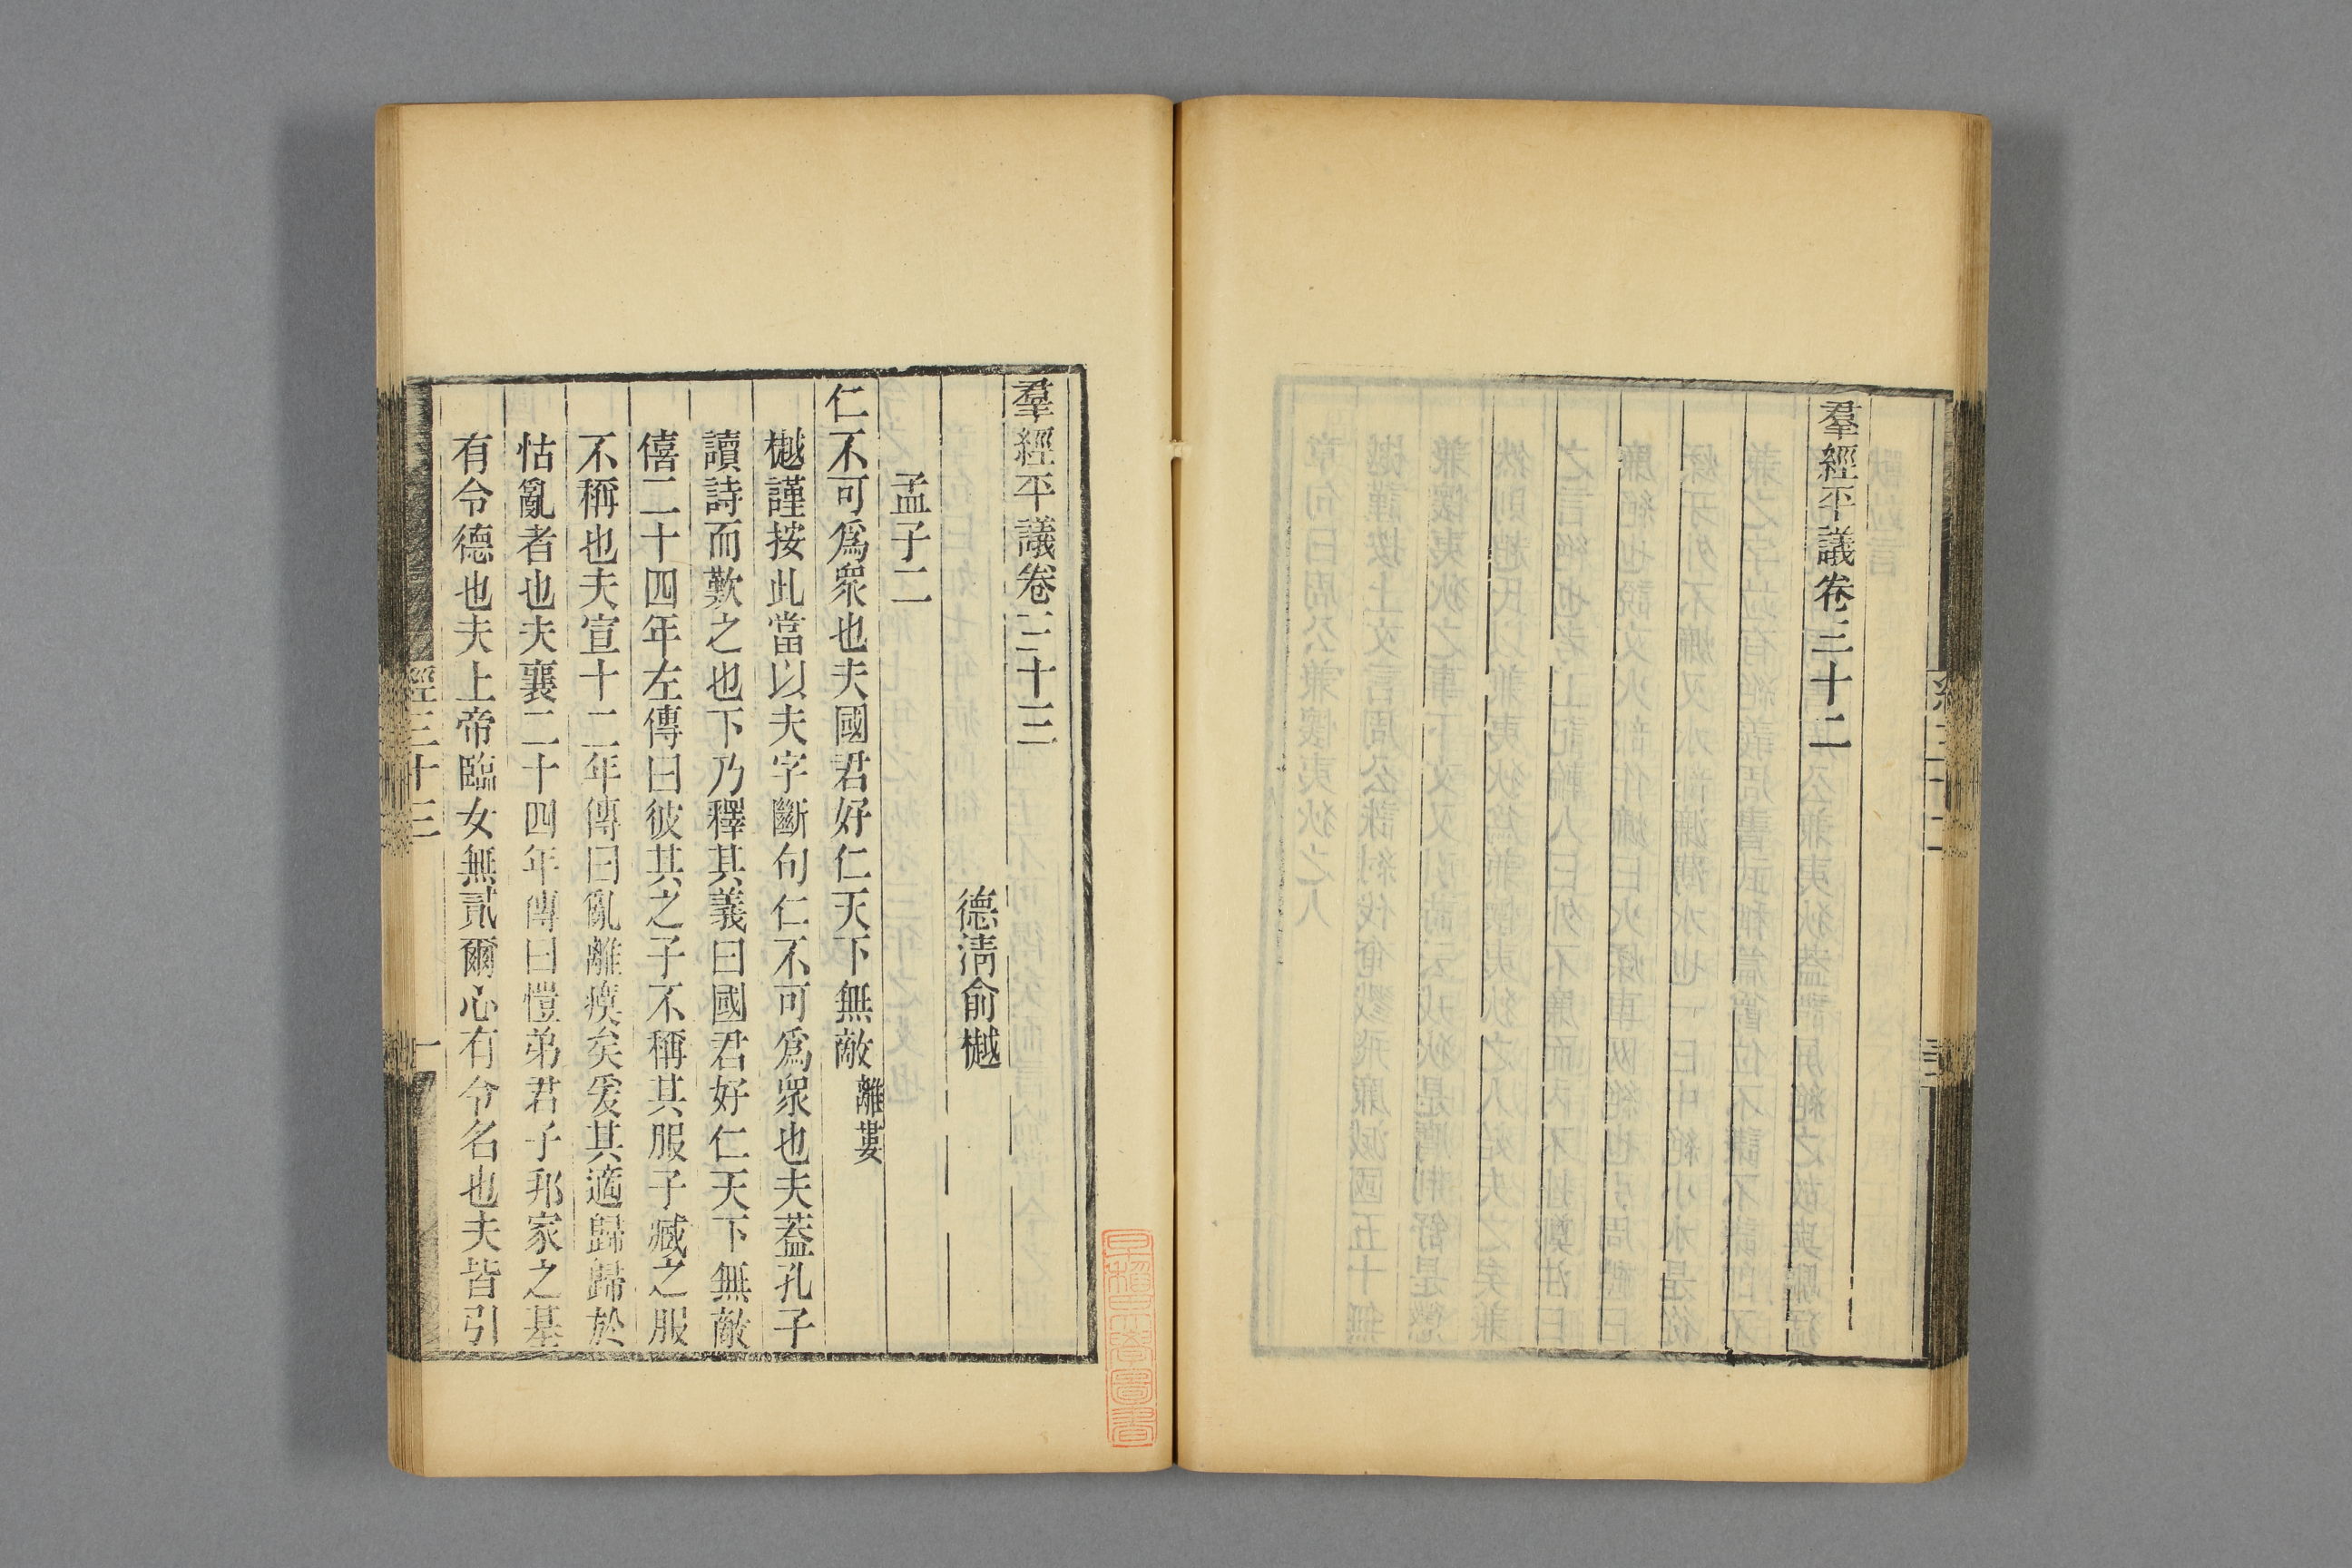 羣經平議卷三十二
羣經平議卷三十三
德淸俞樾
孟子二
仁不可爲衆也夫國君好仁天下無敵離婁
樾謹按此當以夫字斷句仁不可爲衆也夫葢孔子
讀詩而歎之也下乃釋其義曰國君好仁天下無敵
僖二十四年左傳曰彼其之子不稱其服子臧之服
不稱也夫宣十二年傳曰亂離瘼矣爰其適歸歸於
怙亂者也夫襄二十四年傳曰愷弟君子邦家之基
有令德也夫上帝臨女無貳爾心有令名也夫皆引
經三十三
一